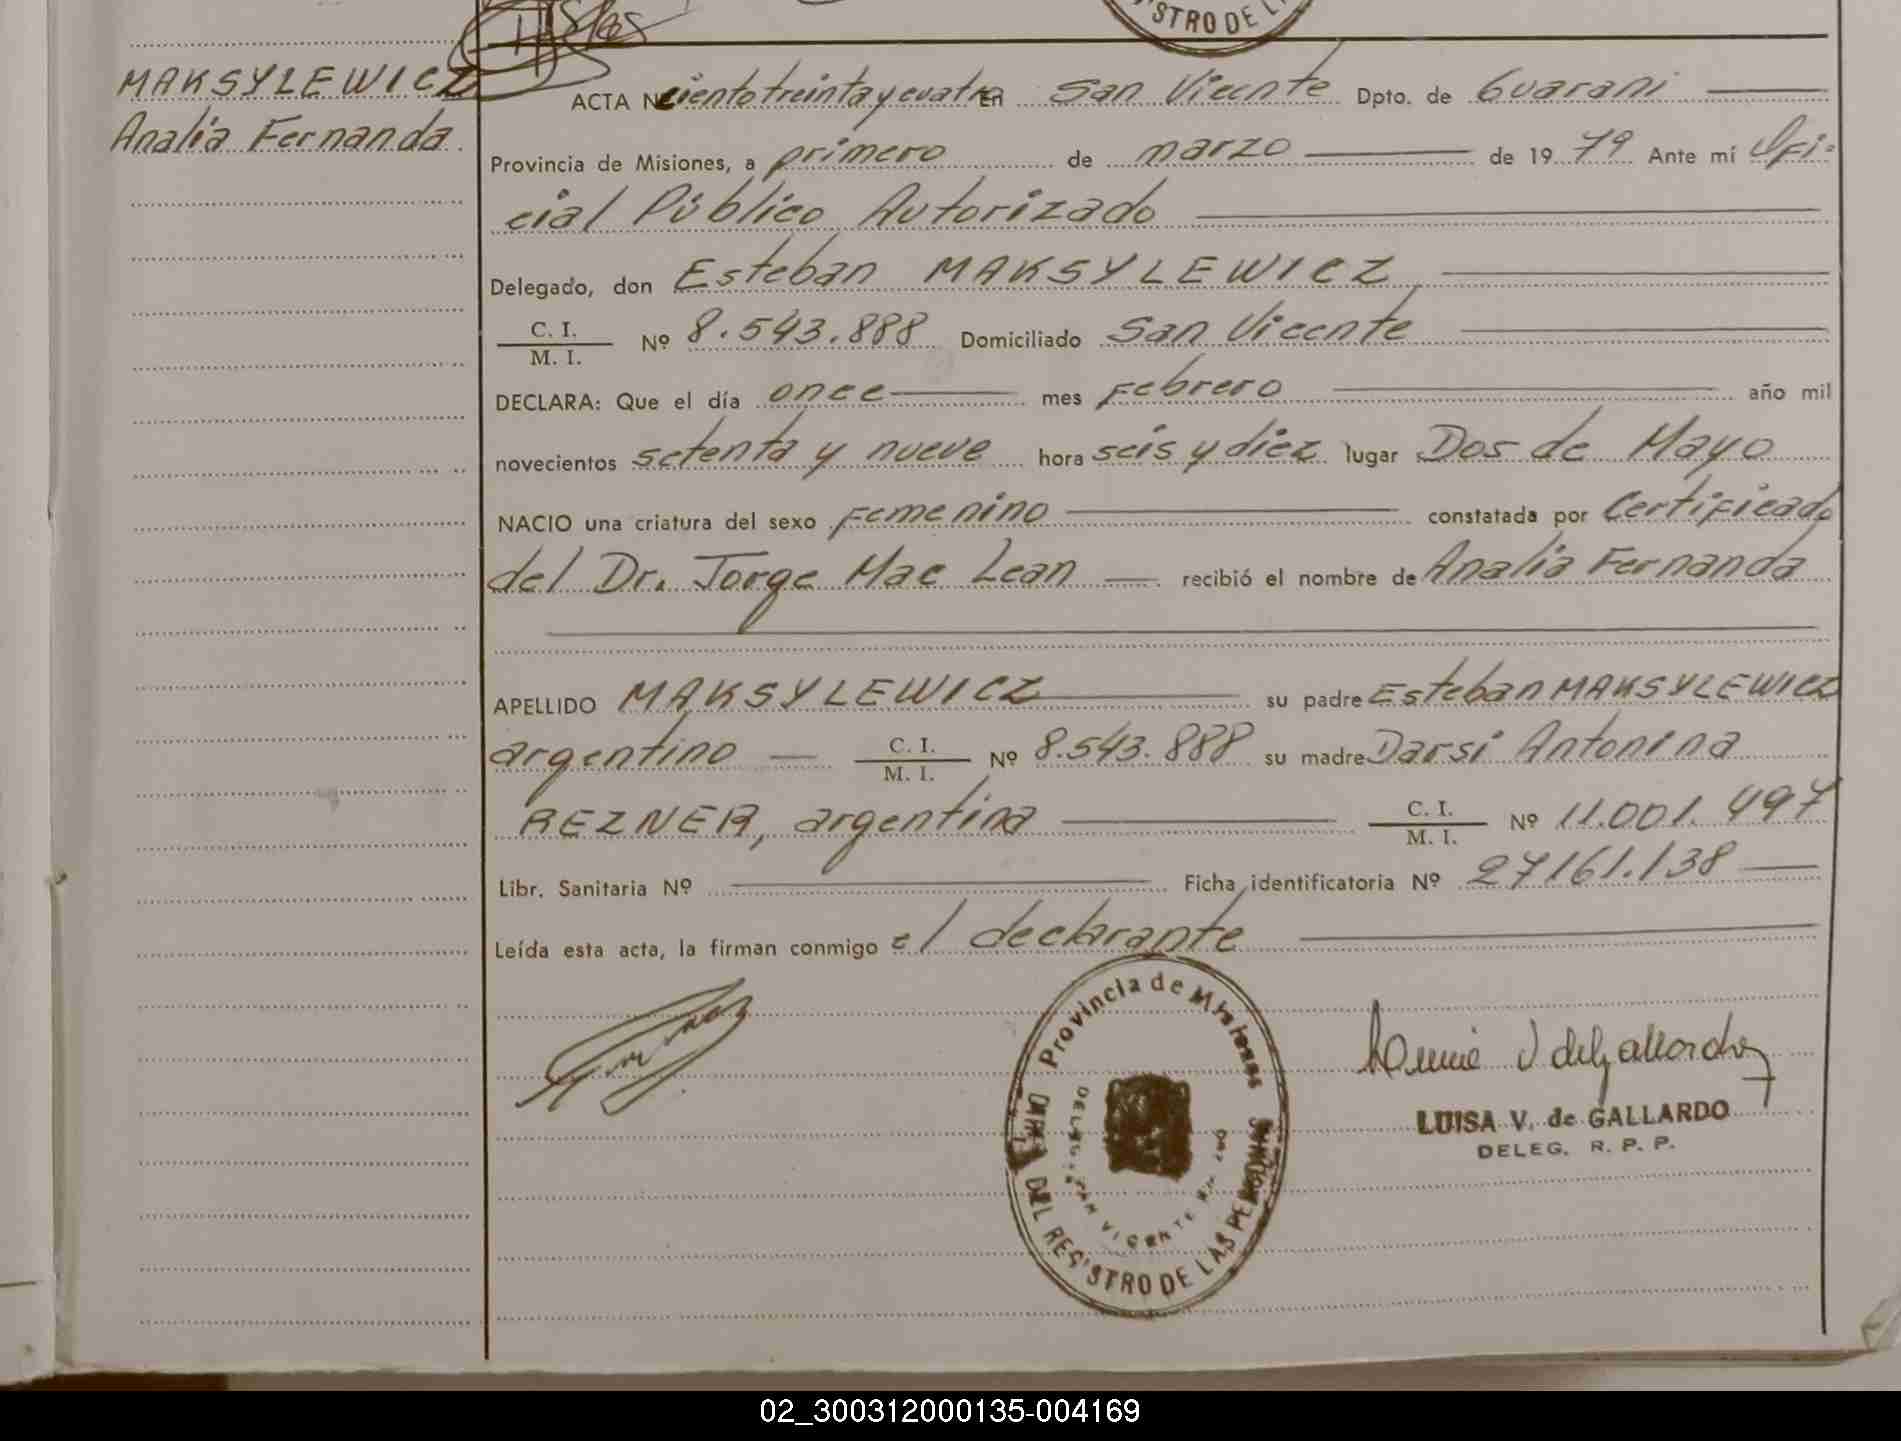 MAKSYLEWICZ
Analia Fernanda.
ACTA Nº ciento treinta y cuatro En San Vicente Dpto. de Guarani
Provincia de Misiones, a primero de marzo de 1979 Ante mí Ofi-
cial Público Autorizado
Delegado, don Esteban MAKSYLEWICZ
C. I.
M. I. Nº 8.543.888 Domiciliado San Vicente
DECLARA: Que el día once mes Febrero año mil
novecientos setenta y nueve hora seis y diez lugar Dos de Mayo
NACIO una criatura del sexo Femenino constatada por Certificado
del Dr. Jorge Mac Lean recibió el nombre de Analia Fernanda
APELLIDO MAKSYLEWICZ su padre Esteban MAKSYLEWICZ
argentino C. I. M. I. Nº 8.543.888 su madre Darsi Antonina
REZNER, argentina C. I. M. I. Nº 11.001.497
Libr. Sanitaria Nº Ficha identificatoria Nº 27161.138
Leída esta acta, la firman conmigo el declarante
Provincia de Misiones
DEL REGISTRO DE LAS PERSONAS
SAN VICENTE
V de Gallardo
LUISA V. de GALLARDO
DELEG. R. P. P.
02_300312000135-004169